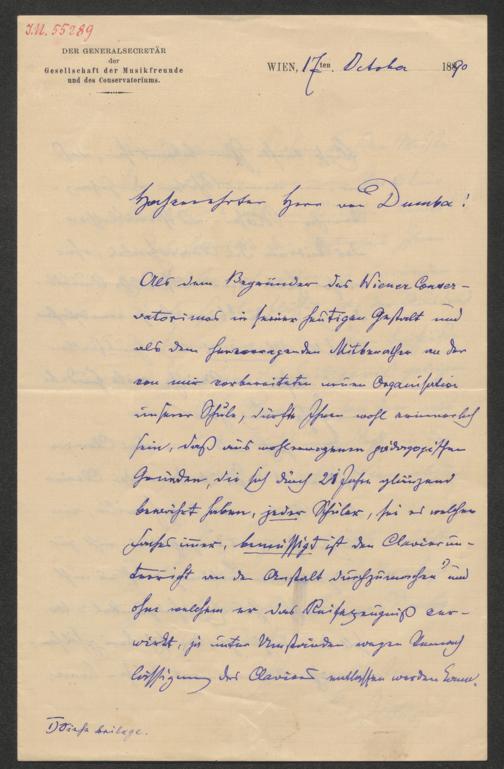 I.N. 55289
DER GENERALSECRETÄR
der
Gesellschaft der Musikfreunde
und des Conservatoriums.
WIEN, 17ten October 1890
Hochverehrter Herr von Dumba!
Als dem Begründer des Wiener Conser-
vatoriums in seiner heutigen Gestalt und
als dem hervorragenden Mitberather an der
von mir vorbereiteten neuen Organisation
unserer Schule, dürfte Ihnen wohl erinnerlich
sein, daß aus wohlerwogenen pädagogischen
Gründen, die sich durch 20 Jahre glänzend
bewährt haben, jeder Schüler, sei es welchen
Faches immer, bemüssigt ist den Clavierun-
terricht an der Anstalt durchzumachen 1) und
ohne welchem er das Reifezeugniß ver-
wirkt, ja unter Umständen wegen Vernach
lässigung des Claviers entlassen werden kann.
1) Siehe Beilage.